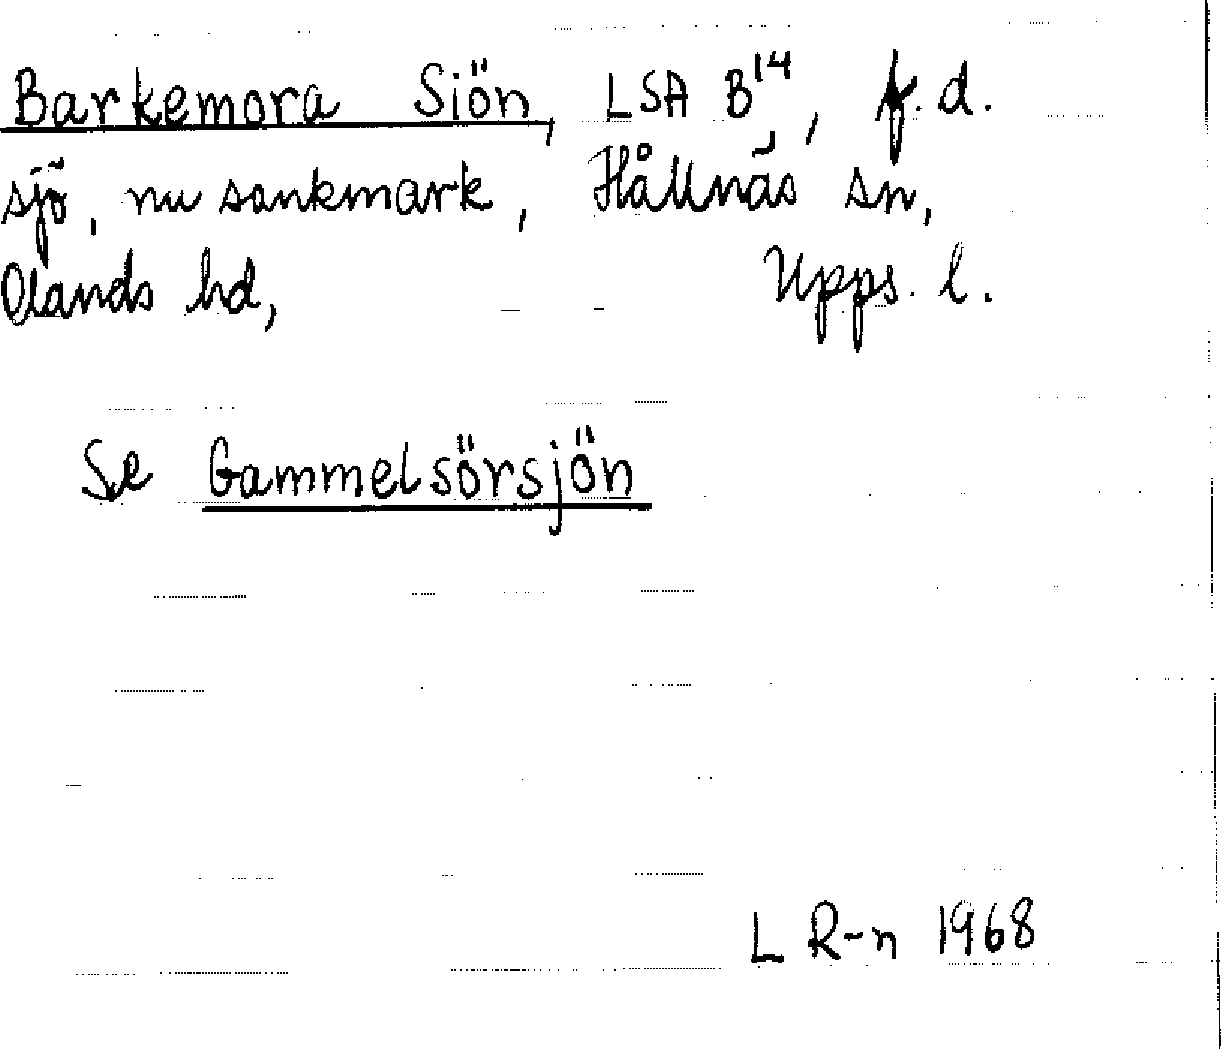 Barkemora Siön, LSA B14, f.d.
sjö, nu sankmark, Hållnäs sn,
Olands hd, Upps. l.
Se Gammelsörsjön
L R-n 1968